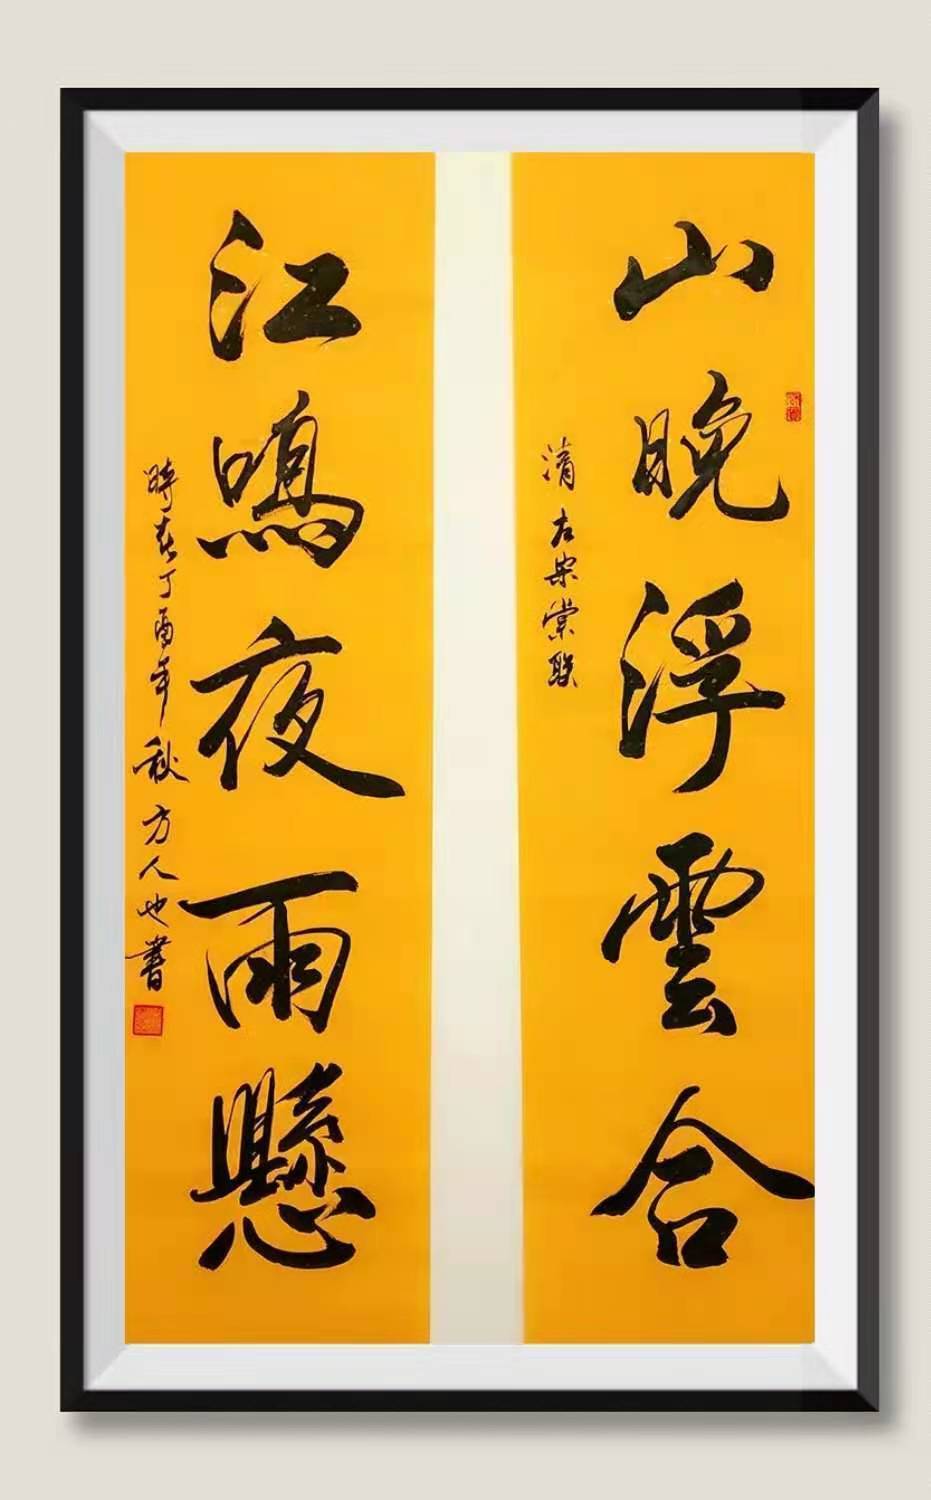 山晚浮雲合
清左宗棠联
江鳴夜雨懸
時在丁酉年秋方人也書